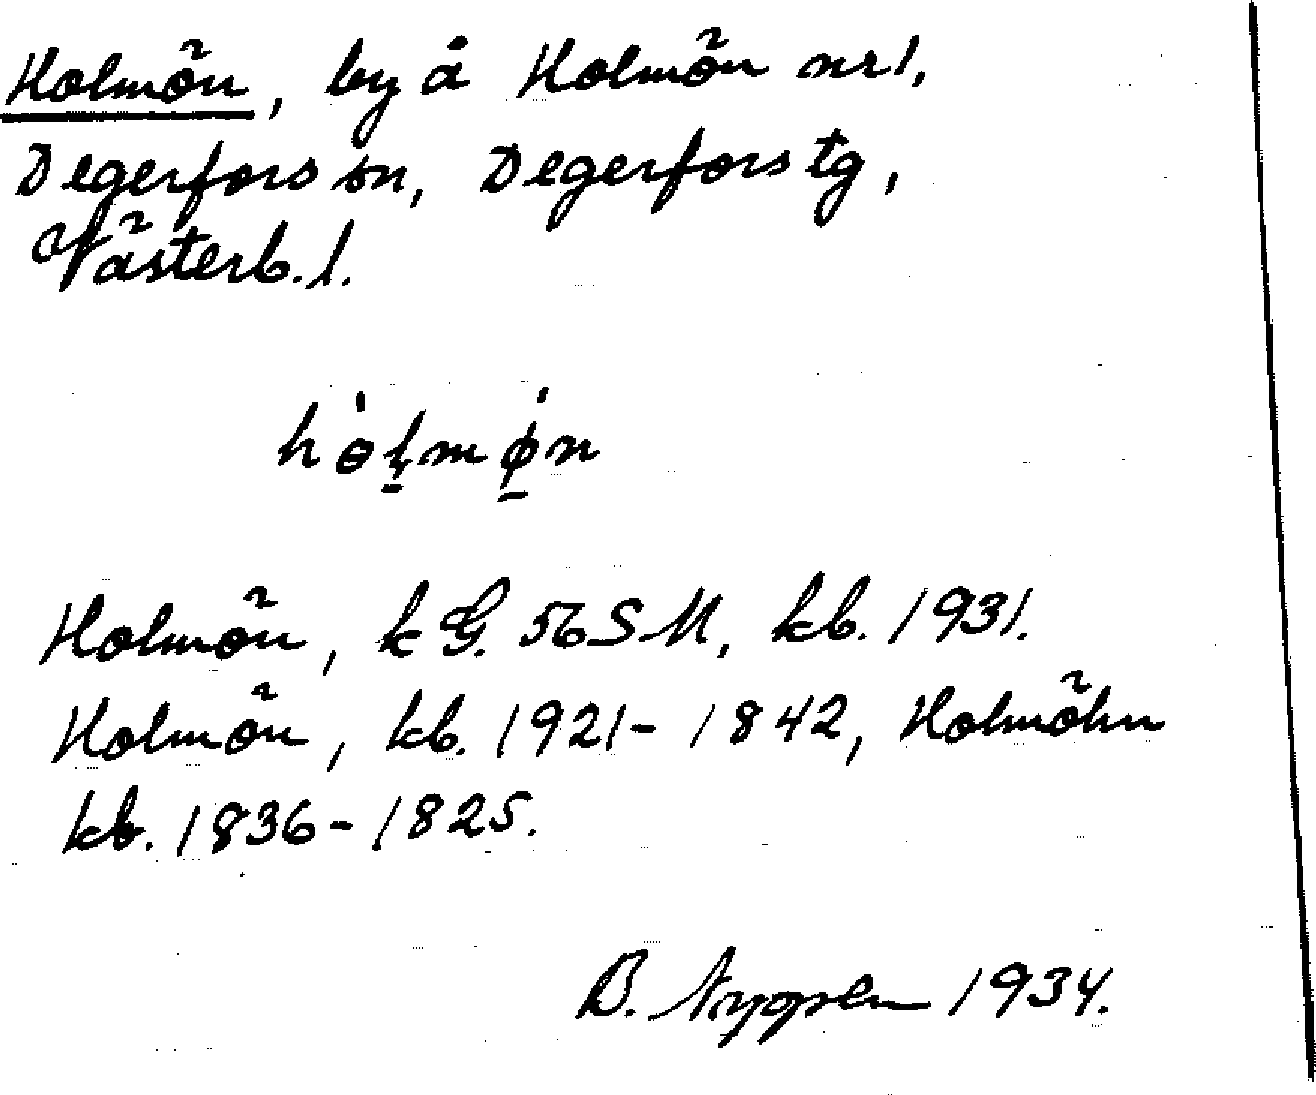 Holmön, by å Holmön nr 1,
Degerfors sn, Degerfors tg,
Västerb. l.
hòḷmø̣n
Holmön, k G. 56 SM, kb. 1931.
Holmön, kb. 1921-1842, Holmöhn
kb. 1836-1825.
B. Nygren 1934.